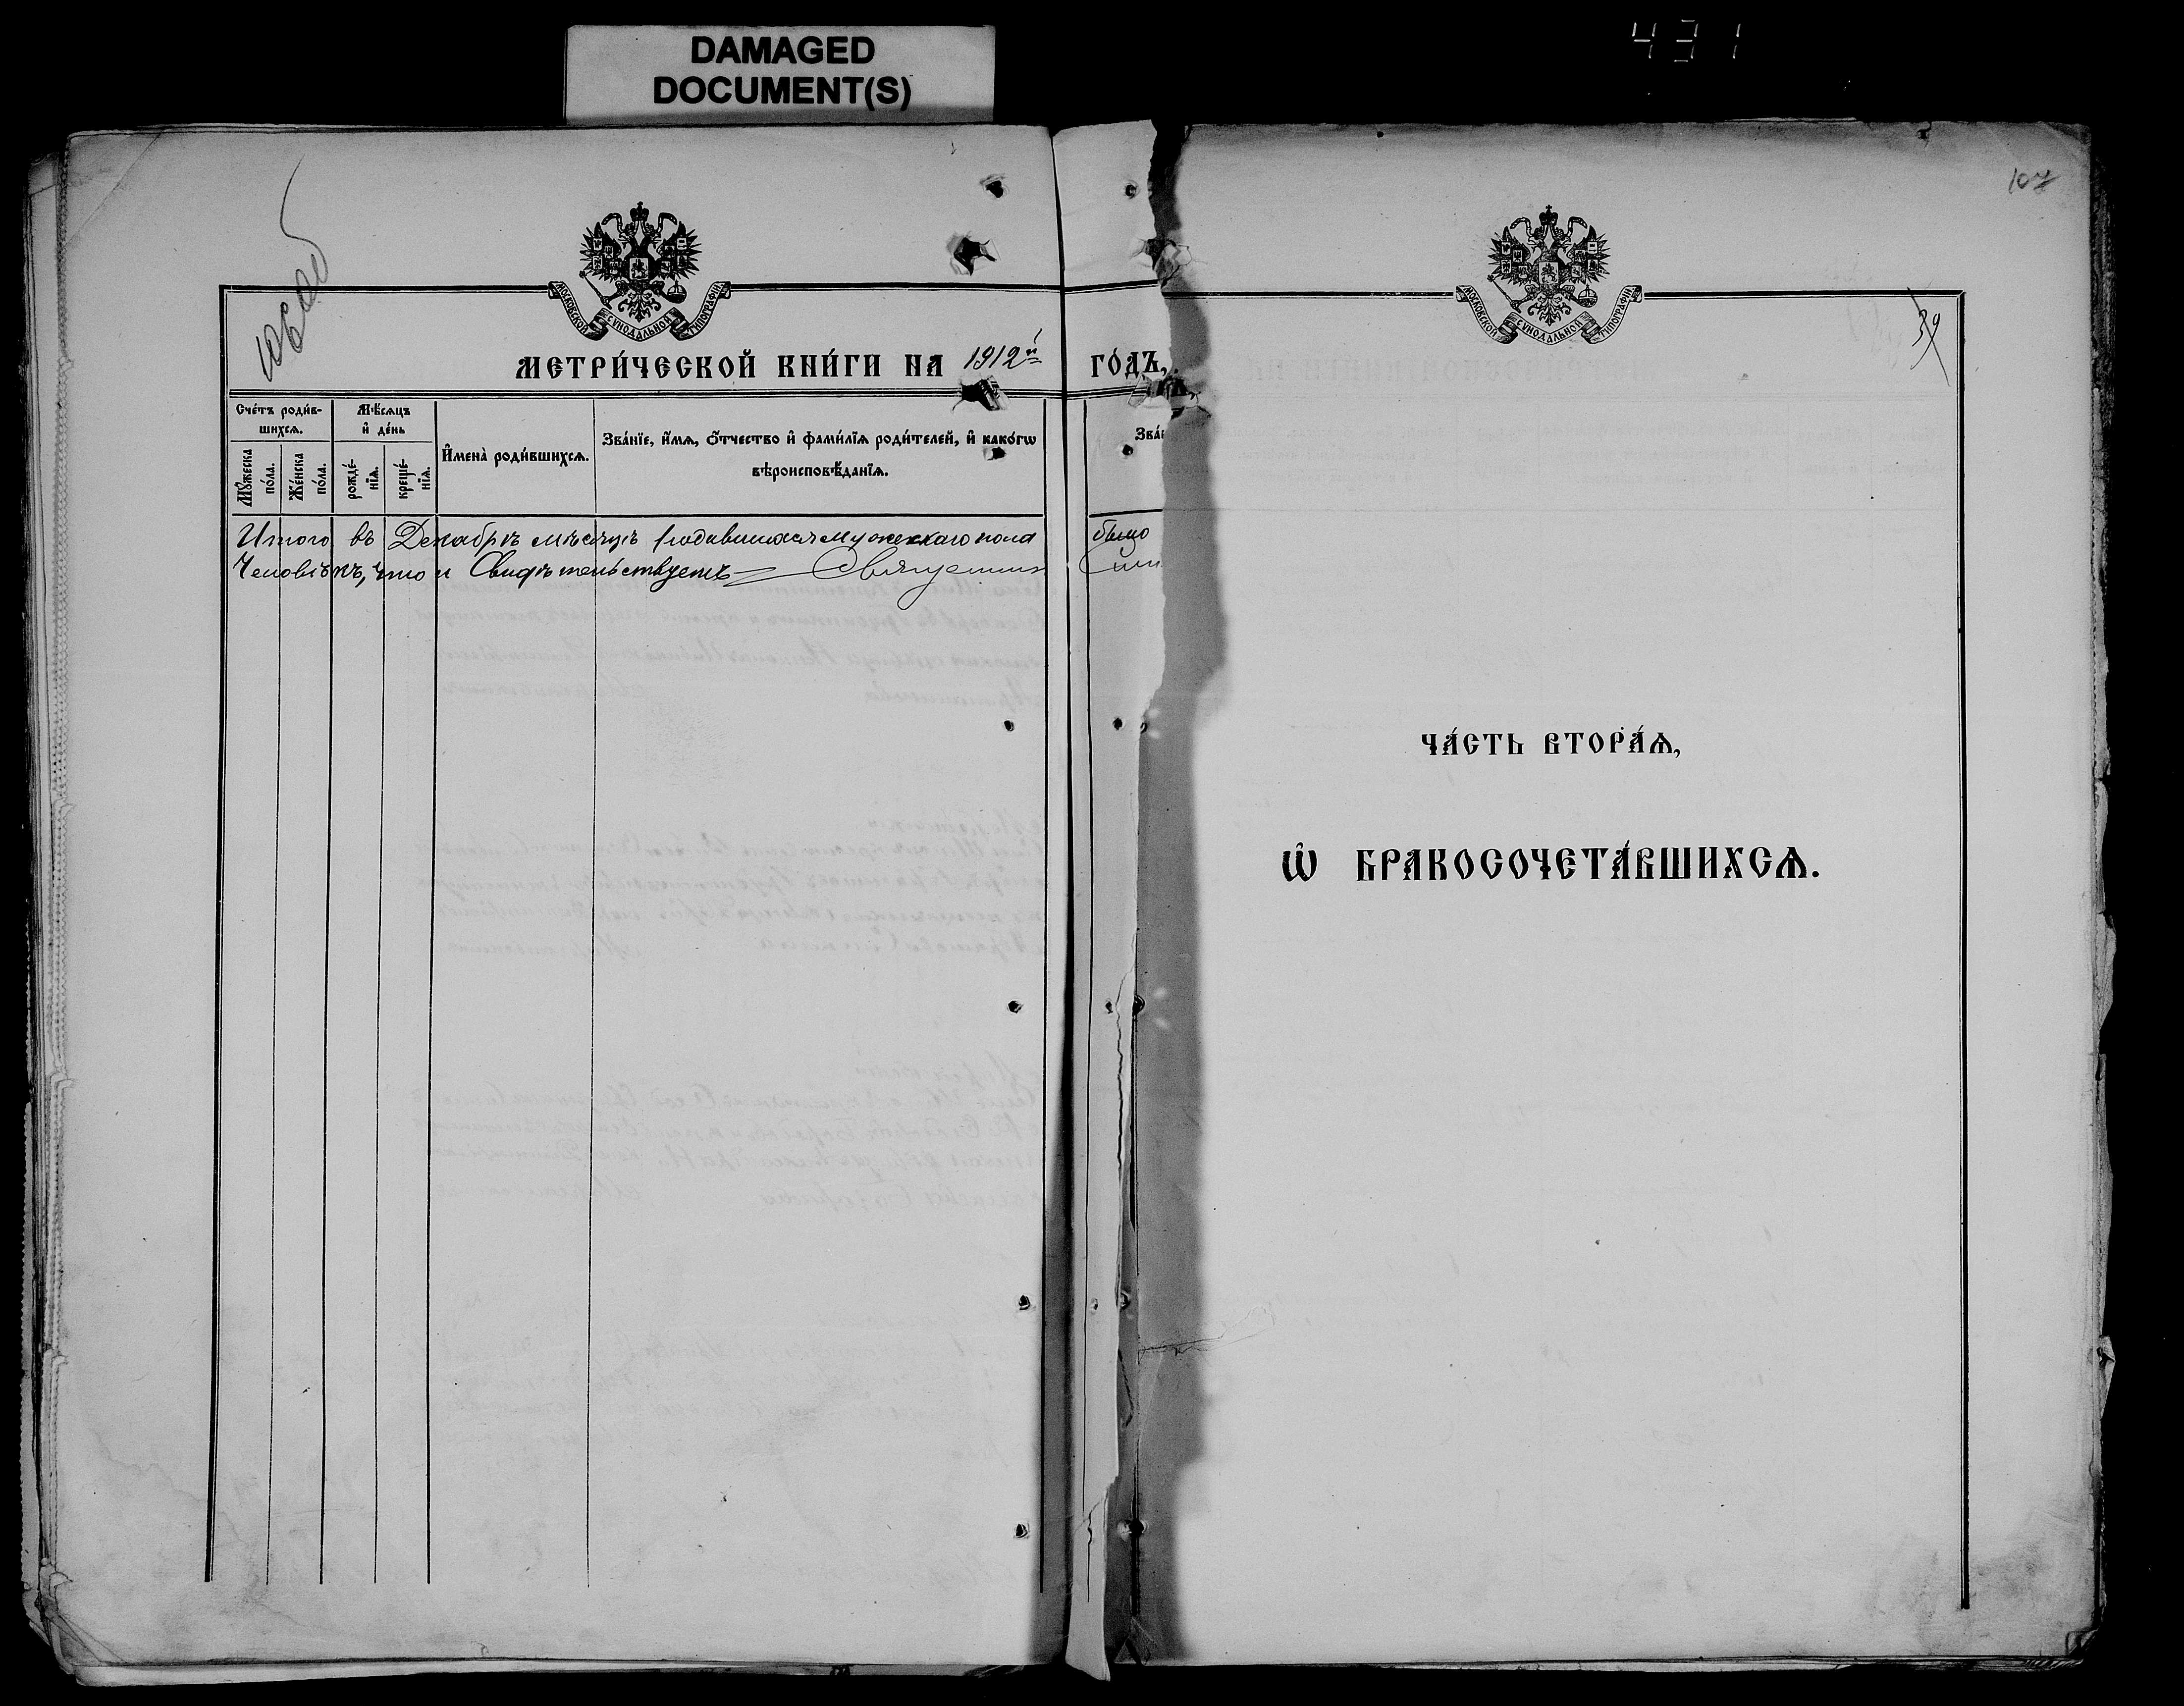 DAMAGED
DOCUMENT(S)
431
107
39
МОСКОВСКОЙ СѴНОДАЛЬНОЙ ТИПОГРАФІИ
МЕТРИ́ЧЕСКОЙ КНИ́ГИ НА 1912й ГО́ДЪ,
Сче́тъ роди́в-
шихсѧ.
Мꙋ́жеска
по́ла.
Же́нска
по́ла.
Мѣ́сѧцъ
и҆ де́нь
рожде́-
нїѧ.
креще́-
нїѧ.
И҆мена̀ роди́вшихсѧ.
Зва́нїе, и҆́мѧ, ѻ҆́тчество и҆ фами́лїѧ роди́телей, и҆ како́гѡ
вѣроисповѣ́данїѧ.
Итого въ Декабрѣ мѣсяцѣ родившихся мужескаго пола было
Человѣкъ, что и Свидѣтельствуетъ Священник
МОСКОВСКОЙ СѴНОДАЛЬНОЙ ТИПОГРАФІИ
ЧА́СТЬ ВТОРА́Ѧ,
Ѡ҆ БРАКОСОЧЕТА́ВШИХСѦ.